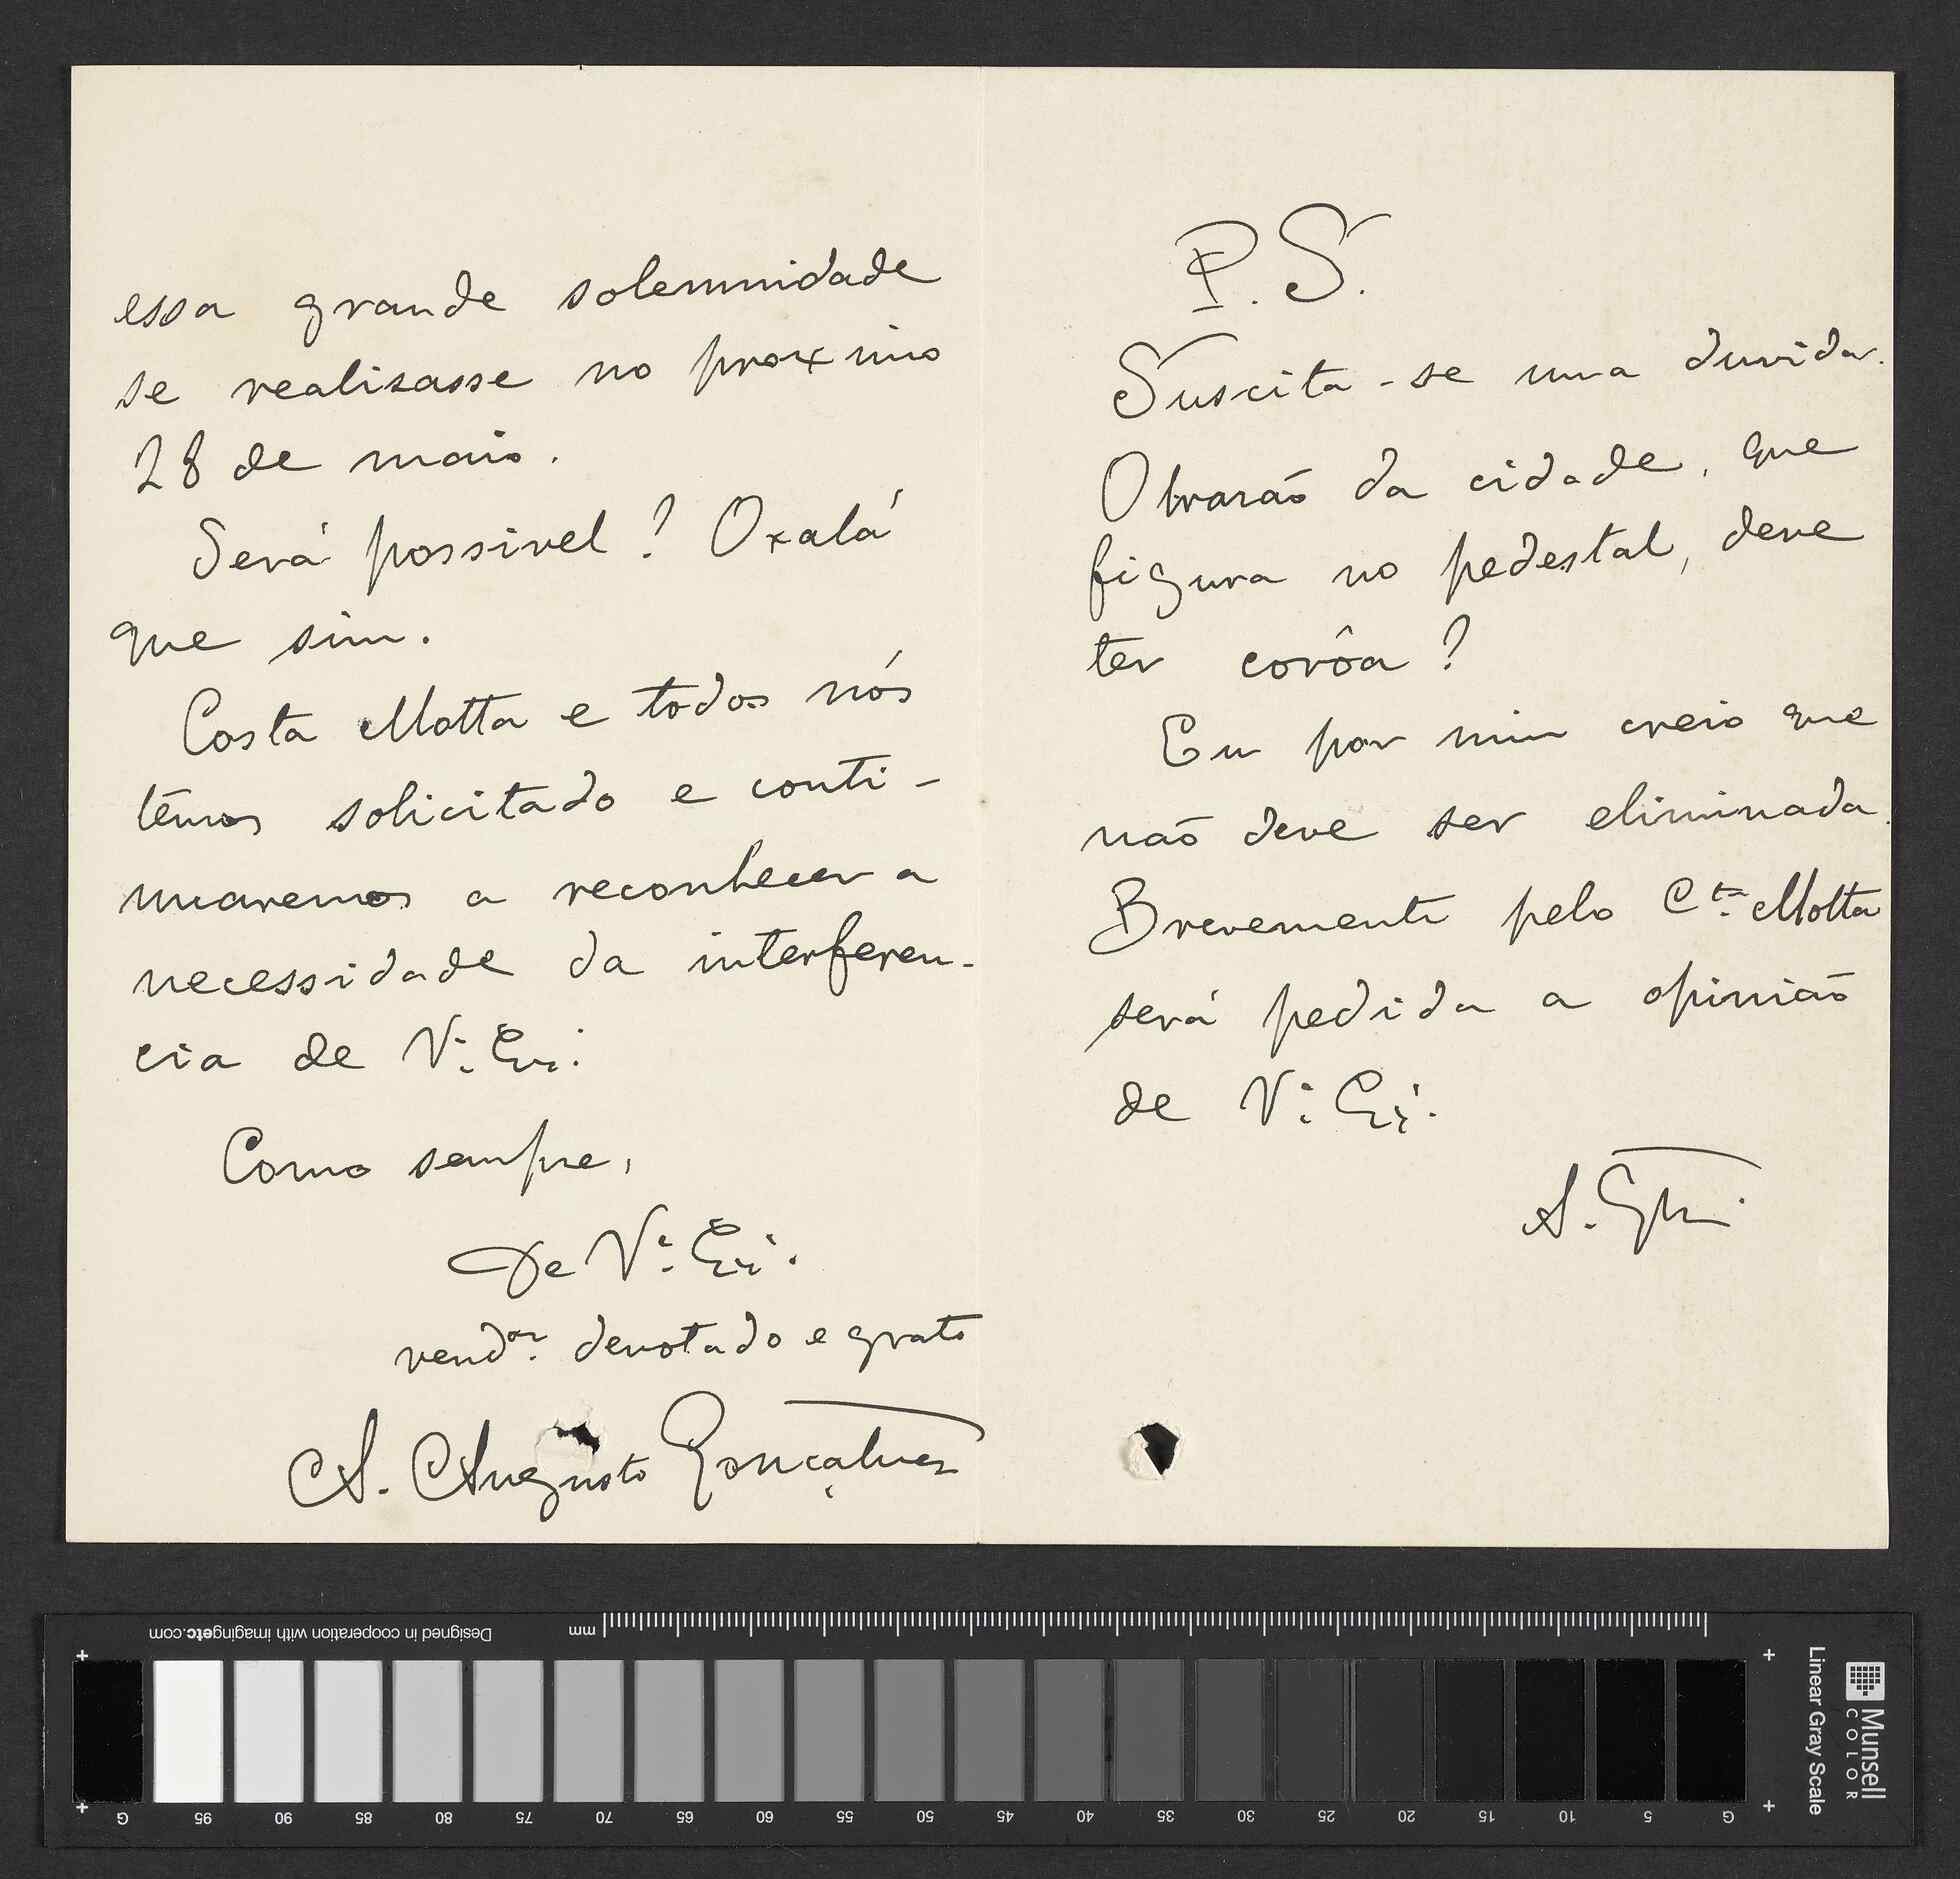 essa grande solemnidade
se realisasse no proximo
28 de maio.
Será possivel? Oxalá
que sim.
Costa Motta e todos nós
têmos solicitado e conti-
nuaremos a reconhecer a
necessidade da interferen-
cia de V.ª Ex.ª
Como sempre,
De V.ª Ex.ª
vend.or devotado e grato
A. Augusto Gonçalves
P.S.
Suscita-se uma duvida.
O brasão da cidade, que
figura no pedestal, deve
ter corôa?
Eu por mim creio que
não deve ser eliminada.
Brevemente pelo C.ta Motta
será pedida a opinião
de V.ª Ex.ª
A. G.
mm
Designed in cooperation with imagingetc.com
G 95 90 85 80 75 70 65 60 55 50 45 40 35 30 25 20 15 10 5 G
Linear Gray Scale
Munsell
COLOR